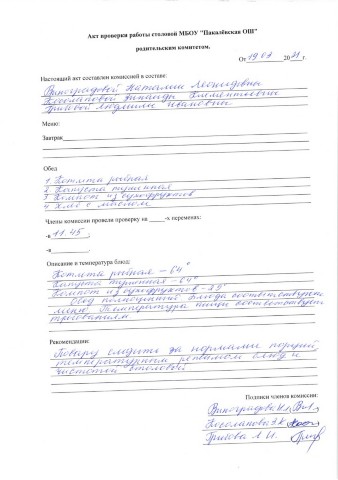 Акт проверки работы столовой МБОУ "Пакалёвская ОШ"
родительским комитетом.
От 19.03 2021 г.
Настоящий акт составлен комиссией в составе:
Виноградовой Натальи Леонидовны
Косолаповой Зинаиды Клементьевны
Грибовой Людмилы Ивановны
Меню:
Завтрак
Обед
1. Котлета рыбная
2. Капуста тушенная
3. Компот из сухофруктов
4. Хлеб с маслом
Члены комиссии провели проверку на ____-х переменах:
-в 11.45 ;
-в ;
Описание и температура блюд:
Котлета рыбная – 64°
Капуста тушенная – 64°
Компот из сухофруктов – 29°
Обед полноценный. Блюда соответствуют
меню. Температура пищи соответствует
требованиям.
Рекомендации:
Повару следить за нормами порций,
температурным режимом блюд и
чистотой столовой
Подписи членов комиссии:
Виноградова Н.Л.
Косолапова З.К.
Грибова Л.И.